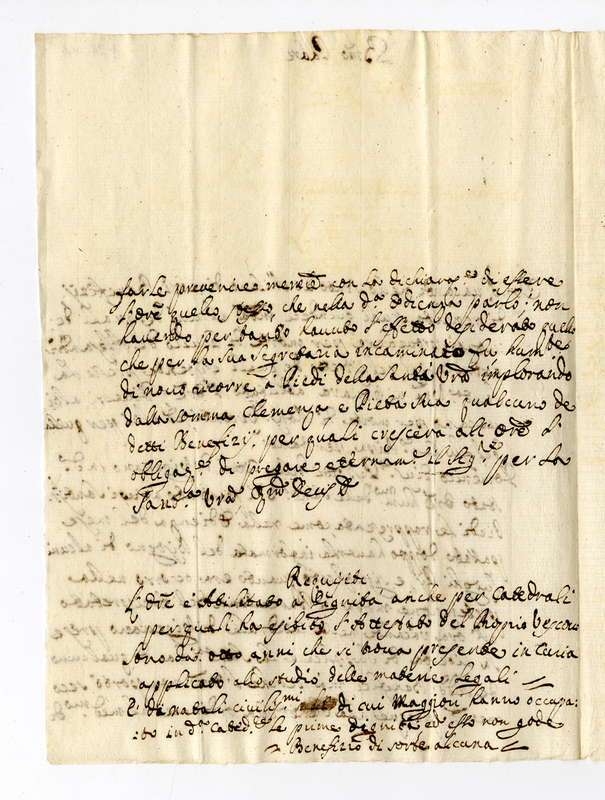 farle pervenire memor.le con la dichiaraz.e di essere
l'Ore quello stesso, che nella d.a Udienza parlò: non
havendo per tanto havuto l'effetto desiderato quello
che per la sua Segretaria incaminato fù, hum.te
di novo ricorre a Piedi della Stà Vrã implorando
dalla somma Clemenza e Pietà Sua qualcuno de
detti Benefizi, per quali crescerà all'Ore l'
obligaz.e di pregare eternam.e il Sig.re per la
Sant.à Vrã
Requisiti
L'Ore è Abilitato a Dignità anche per Catedrali
per quali ha esibito l'Attestato del Proprio Vescovo
Sono già otto anni, che si trova presente in Curia
applicato allo studio delle materie Legali
È di natali civiliss.mi di cui Maggiori hanno occupa:
:to in d.a Cated.le le prime dignità ed esso non gode
Benefizio di sorte alcuna